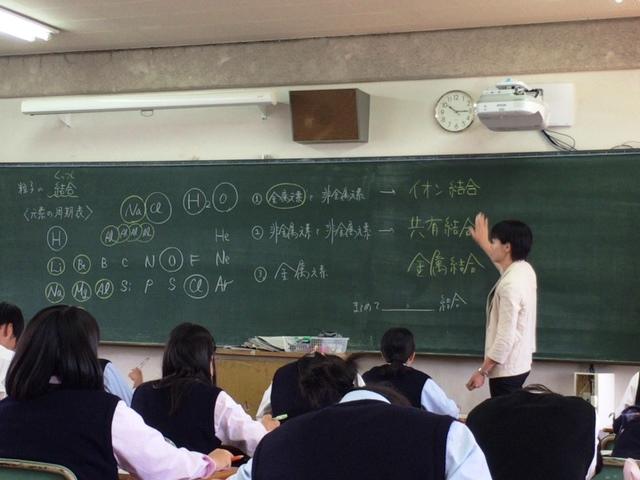 くっつく
粒子の結合
〈元素の周期表〉
Na Cl H₂O
Al Al Al Al
H He
Li Be B C N O F Ne
Na Mg Al Si P S Cl Ar
① 金属元素と非金属元素 → イオン結合
② 非金属元素と非金属元素 → 共有結合
③ 金属元素 金属結合
まとめて 結合